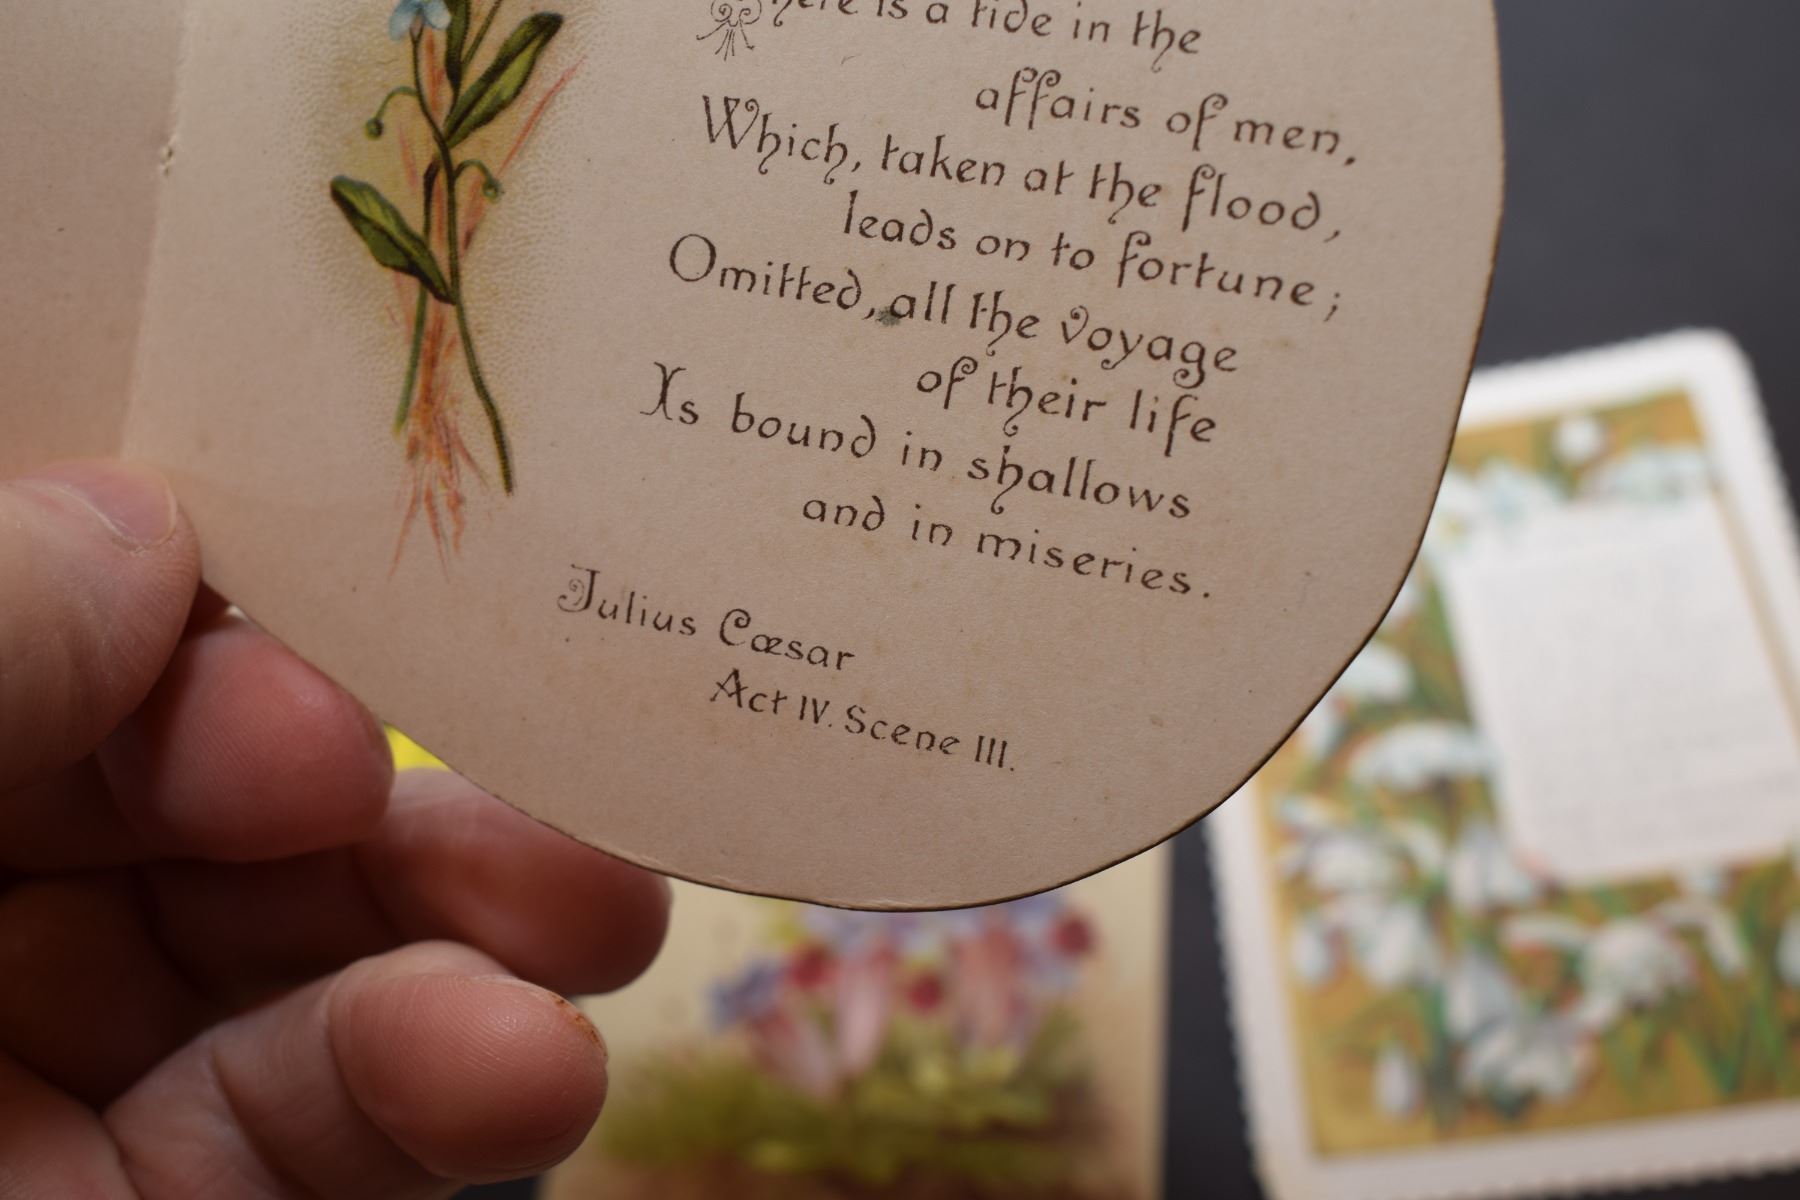 There is a tide in the
affairs of men,
Which, taken at the flood,
leads on to fortune;
Omitted, all the voyage
of their life
Is bound in shallows
and in miseries.
Julius Cæsar
Act IV. Scene III.